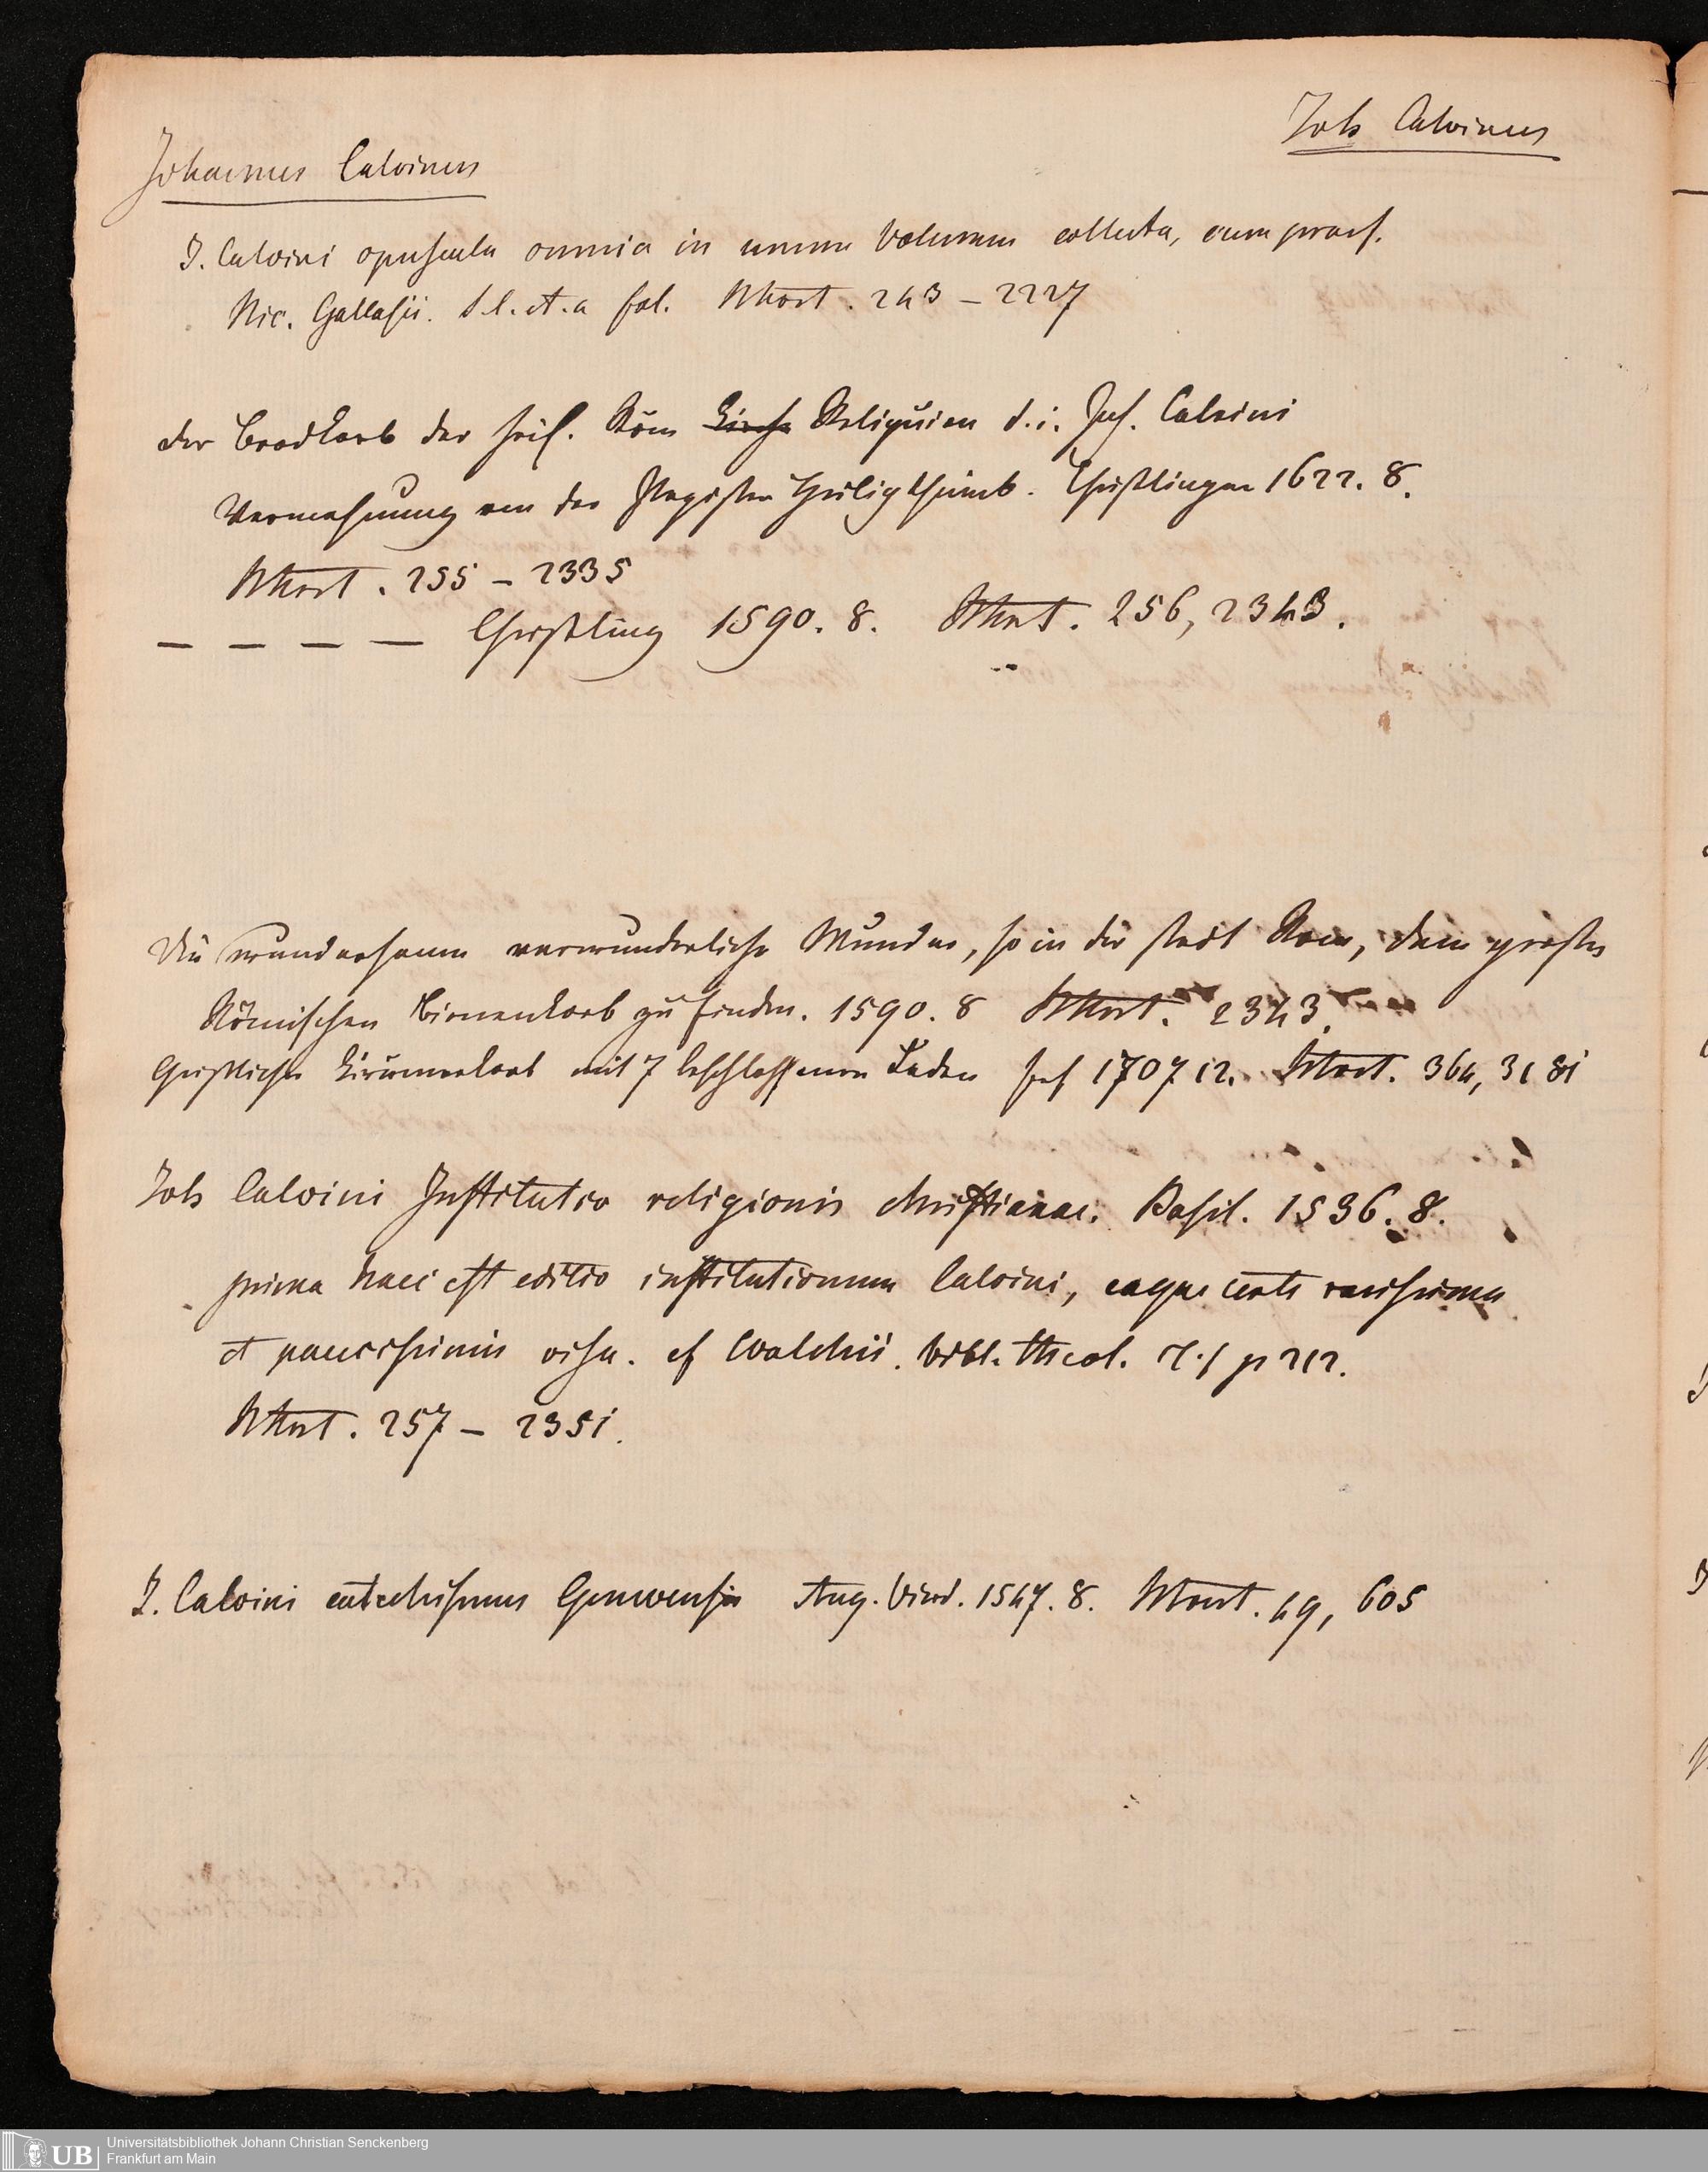 Joh Calvinus
Johannes Calvinus
J. Calvini opuscula omnia in unum Volumen collecta, cum praef.
Nic. Gallasii. S. l. et. a fol. Mkort. 243 – 2227
Der Brodkorb der heil. Röm Kirche Reliquien d. i. Joh. Calvini
Vermahnung von der Papisten Heiligthümb. Christlingen 1622. 8.
Mkort. 255 – 2335
— — — — Christling 1590. 8. Mkort. 256, 2343.
Die wundersamen verwunderliche Wunder, so in die Stadt Rom, dem grossen
Römischen Bienenkorb zu finden. 1590. 8 Mkort. 2343.
Geistlicher mit 7 beschlossenen Laden 1707 12. Mkort. 364, 3181
Joh Calvini Institutio religionis christianae. Basil. 1536. 8.
prima haec est editio institutionum Calvini, eaque certe rarissima
et paucissimis visa. cf Walchii. bibl. theol. T. 1 p 212.
Mkort. 257 – 2351.
J. Calvini catechismus Genevensis Aug. Vind. 1547. 8. Mkort. 49, 605
Universitätsbibliothek Johann Christian Senckenberg
UB Frankfurt am Main